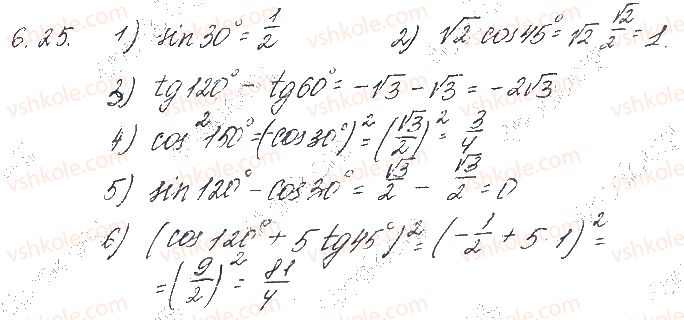 6.25. 1) sin 30° = 1/2 2) √2 cos 45° = √2 √2/2 = 1.
3) tg 120° - tg 60° = -√3 - √3 = -2√3
4) cos² 150° = (-cos 30°)² = (√3/2)² = 3/4
5) sin 120° - cos 30° = √3/2 - √3/2 = 0
6) (cos 120° + 5 tg 45°)² = (-1/2 + 5·1)² =
= (9/2)² = 81/4
vshkole.com